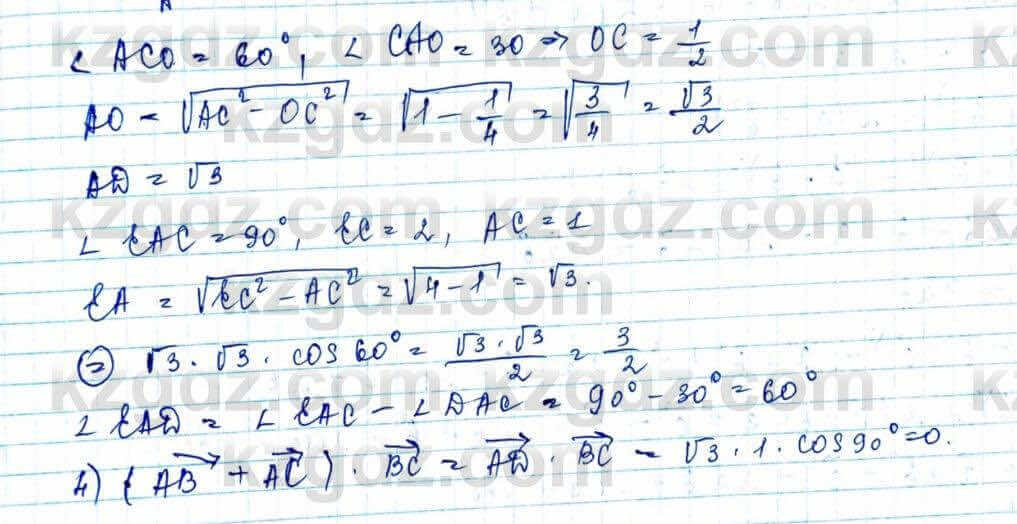 A
∠ ACO = 60°, ∠ CAO = 30 ⇒ OC = 1/2
AO = √(AC² - OC²) = √(1 - 1/4) = √(3/4) = √3/2
AD = √3
∠ EAC = 90°, EC = 2, AC = 1
EA = √(EC² - AC²) = √(4 - 1) = √3.
⊜ √3 · √3 · cos 60° = (√3 · √3)/2 = 3/2
∠ EAD = ∠ EAC - ∠ DAC = 90° - 30° = 60°
4) (AB⃗ + AC⃗) · BC⃗ = AD⃗ · BC⃗ = √3 · 1 · cos 90° = 0.
kzgdz.com